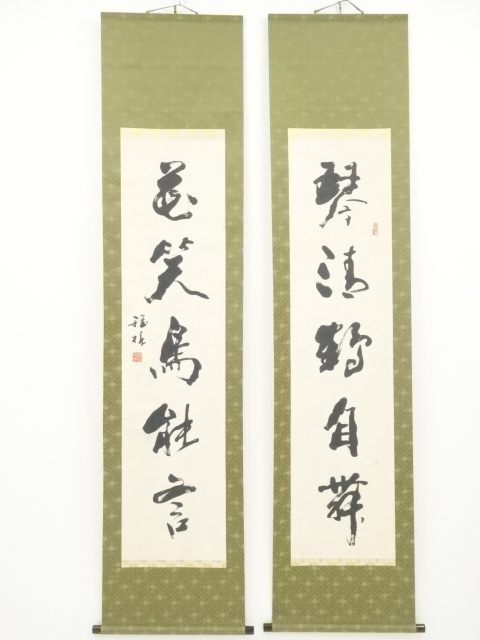 琴清鶴自舞
花笑鳥能言